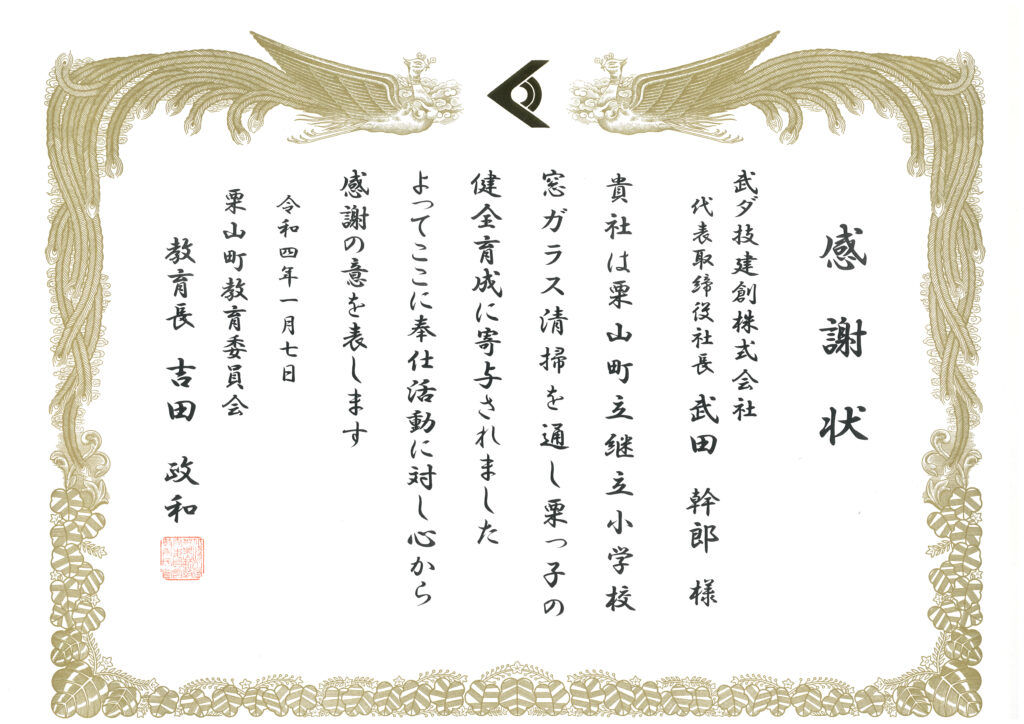 感謝状
武ダ技建創株式会社
代表取締役社長 武田 幹郎 様
貴社は栗山町立継立小学校
窓ガラス清掃を通し栗っ子の
健全育成に寄与されました
よってここに奉仕活動に対し心から
感謝の意を表します
令和四年一月七日
栗山町教育委員会
教育長 吉田 政和